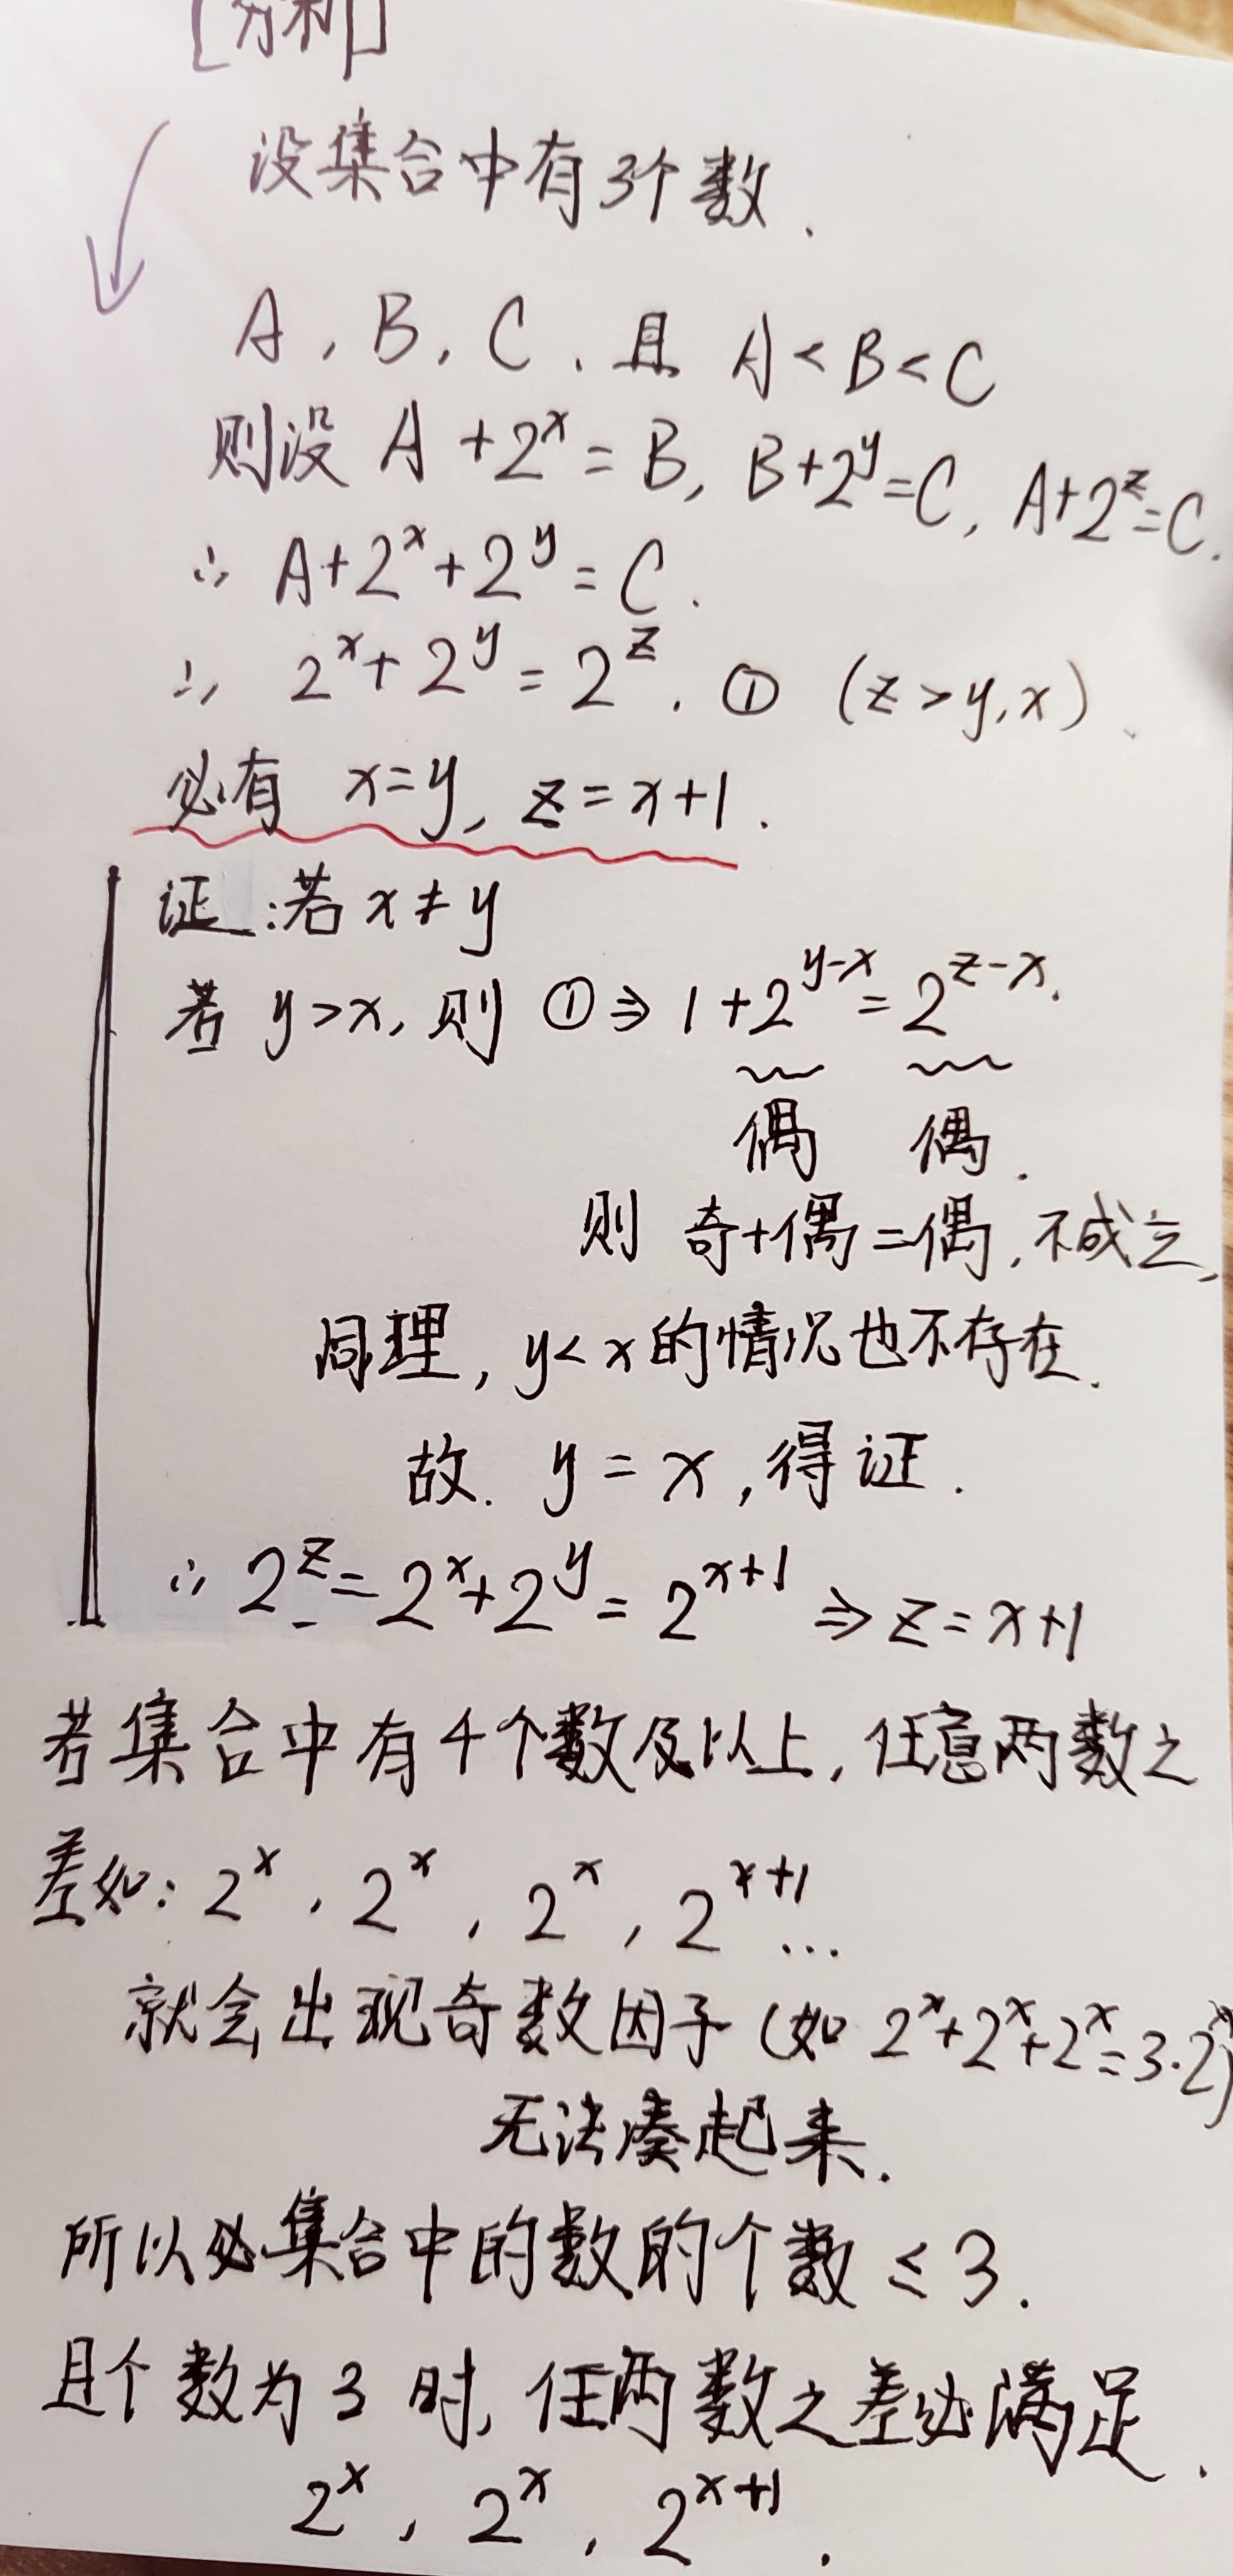 [分析]
设集合中有3个数.
A, B, C, 且 A < B < C
则设 A + 2^x = B, B + 2^y = C, A + 2^z = C.
∴ A + 2^x + 2^y = C.
∴ 2^x + 2^y = 2^z. ① (z > y, x)
必有 x = y, z = x + 1.
证: 若 x ≠ y
若 y > x, 则 ① ⇒ 1 + 2^{y-x} = 2^{z-x}.
偶 偶.
则 奇+偶=偶, 不成立,
同理, y < x 的情况也不存在.
故. y = x, 得证.
∴ 2^z = 2^x + 2^y = 2^{x+1} ⇒ z = x+1
若集合中有4个数及以上, 任意两数之
差如: 2^x, 2^x, 2^x, 2^{x+1} ...
就会出现奇数因子 (如 2^x + 2^x + 2^x = 3·2^x)
无法凑起来.
所以必集合中的数的个数 ≤ 3.
且个数为3时, 任两数之差必满足.
2^x, 2^x, 2^{x+1}.